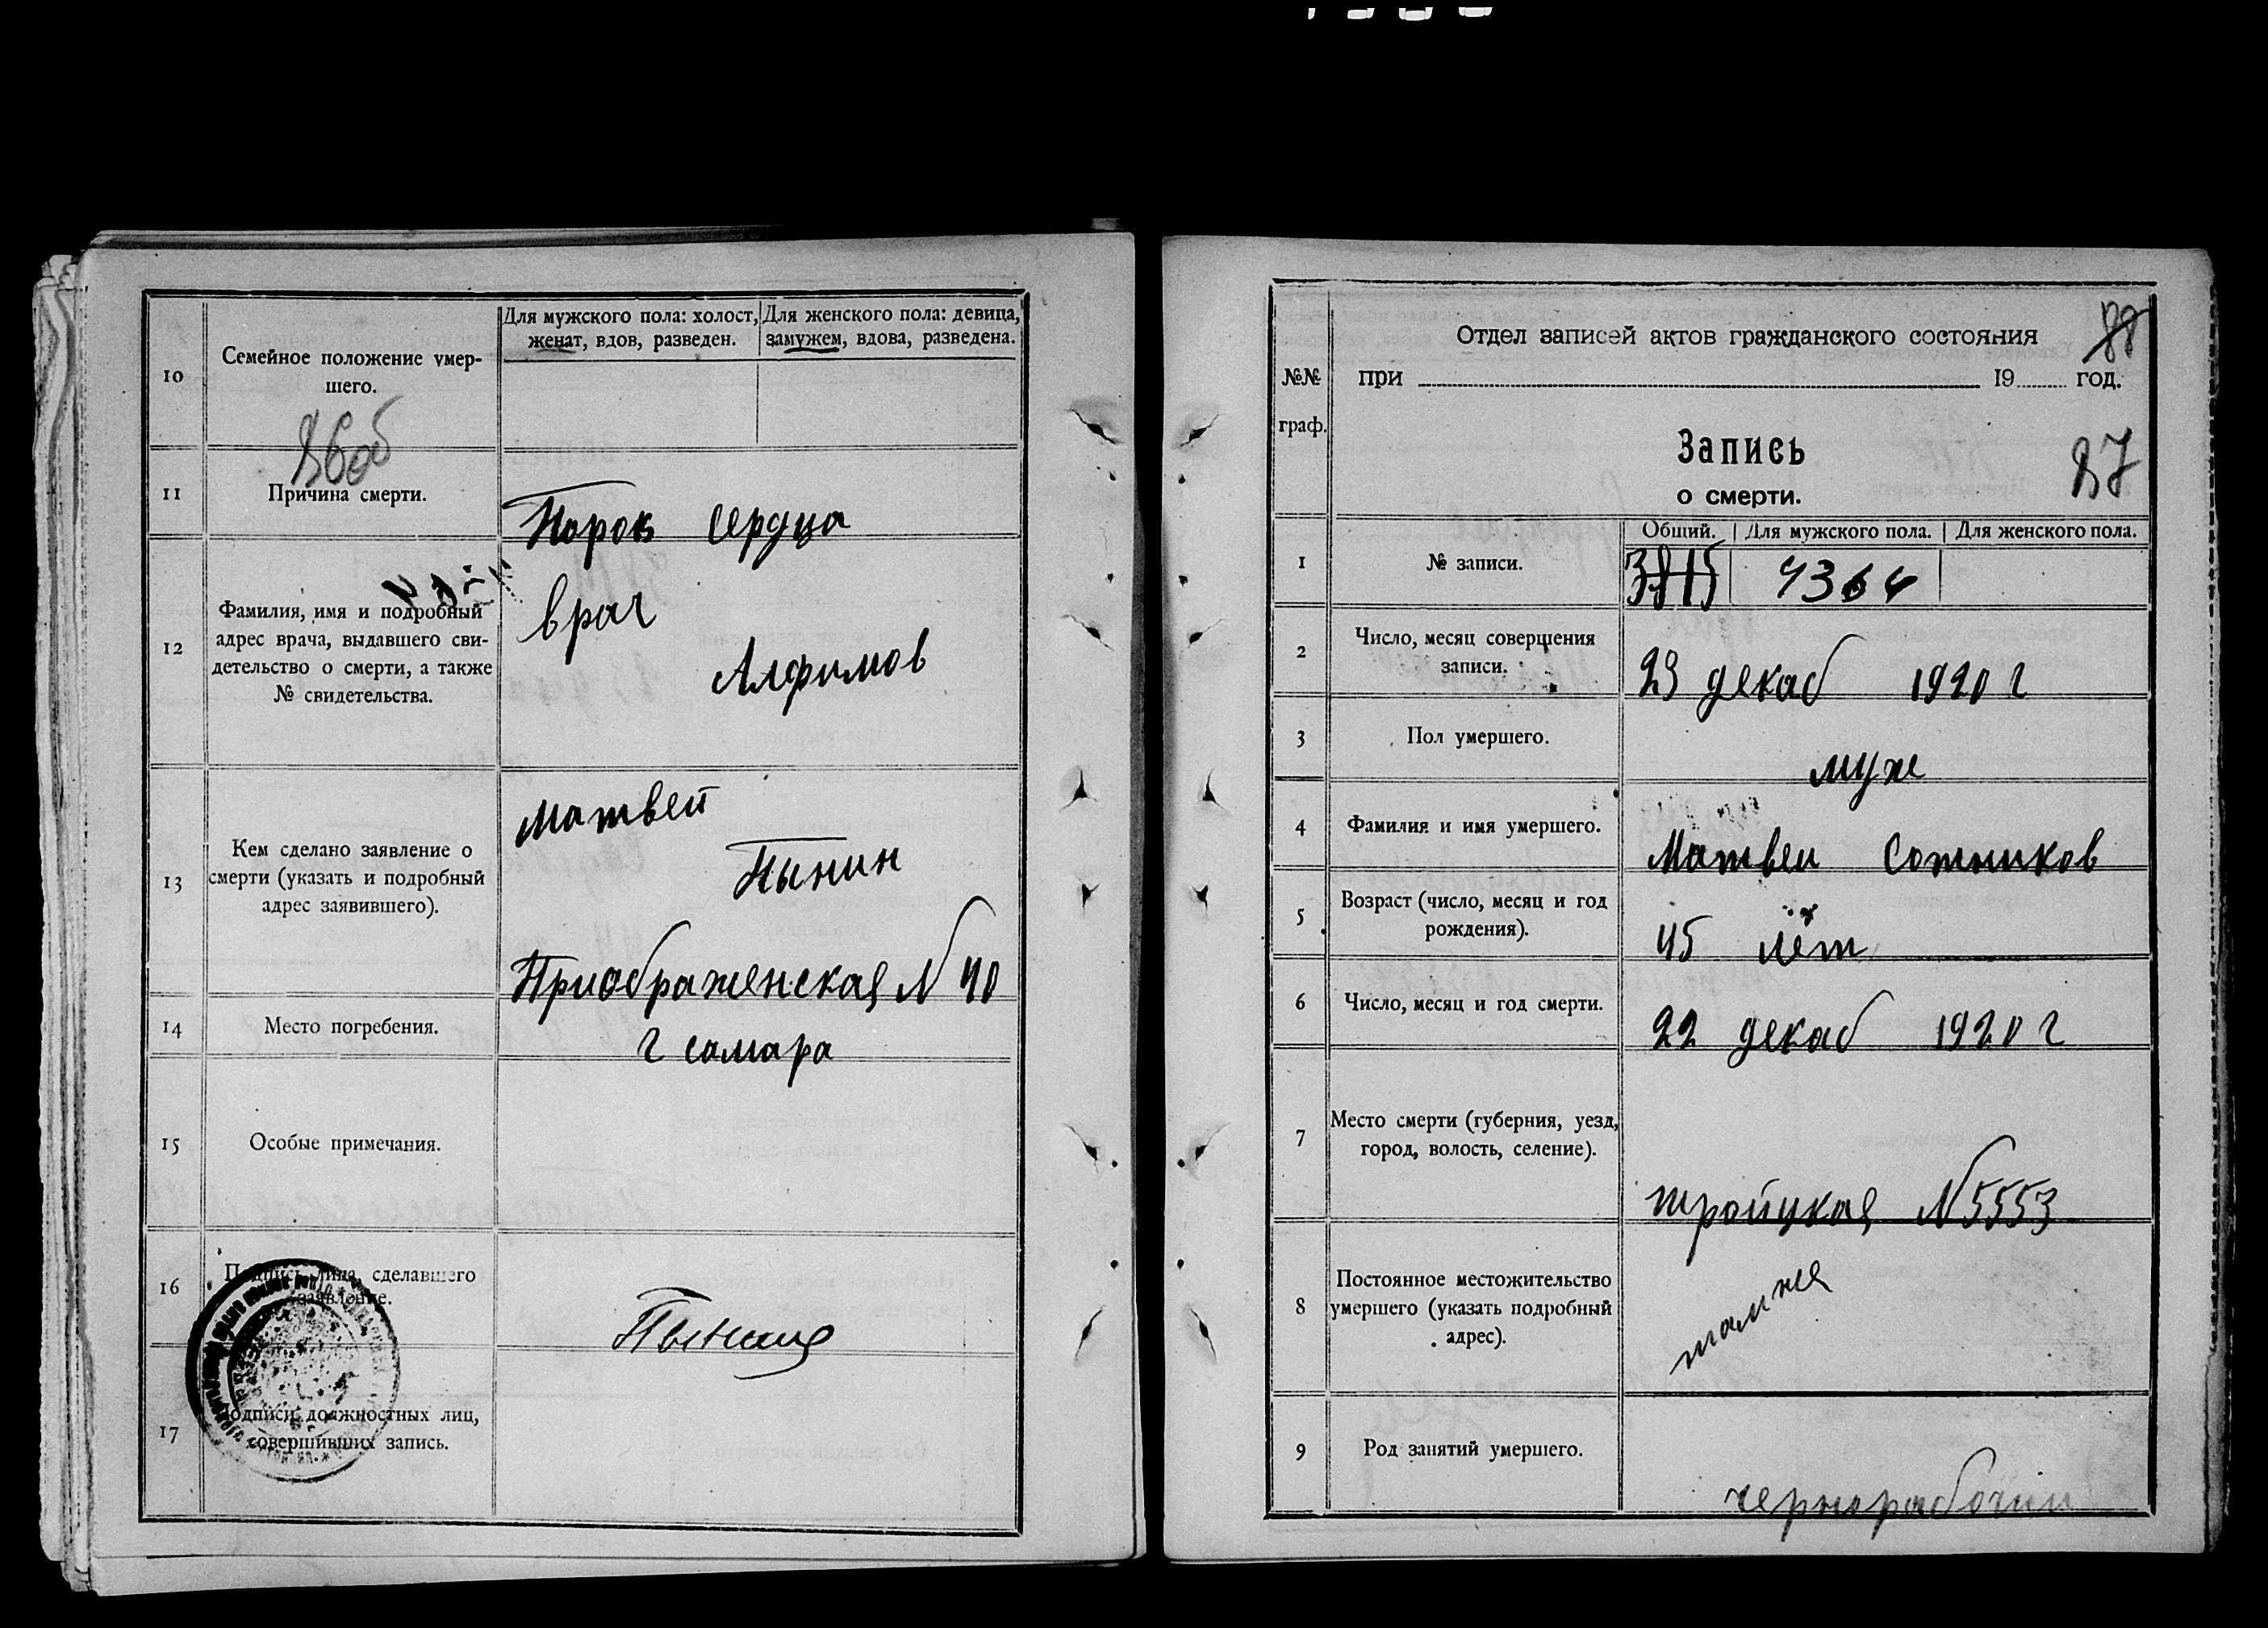 10
Семейное положение умер-
шего.
Для мужского пола: холост,
женат, вдов, разведен.
Для женского пола: девица,
замужем, вдова, разведена.
11
Причина смерти.
Порок Сердца
12
Фамилия, имя и подробный
адрес врача, выдавшего сви-
детельство о смерти, а также
№ свидетельства.
врач
Алфимов
13
Кем сделано заявление о
смерти (указать и подробный
адрес заявившего).
Матвей
Пынин
Приображенская N 40
14
Место погребения.
г самара
15
Особые примечания.
16
Подпись лица, сделавшего
заявление.
17
Подписи должностных лиц,
совершивших запись.
№№
граф.
Отдел записей актов гражданского состояния
88
при 19 год.
Запись
о смерти.
87
Общий. Для мужского пола. Для женского пола.
1
№ записи.
3815 4364
2
Число, месяц совершения
записи.
23 декаб 1920 г
3
Пол умершего.
муж
4
Фамилия и имя умершего.
Матвеи Сотников
5
Возраст (число, месяц и год
рождения).
45 лет
6
Число, месяц и год смерти.
22 декаб 1920 г
7
Место смерти (губерния, уезд,
город, волость, селение).
тройцкая N 5553
8
Постоянное местожительство
умершего (указать подробный
адрес).
тамже
9
Род занятий умершего.
чернорабочии